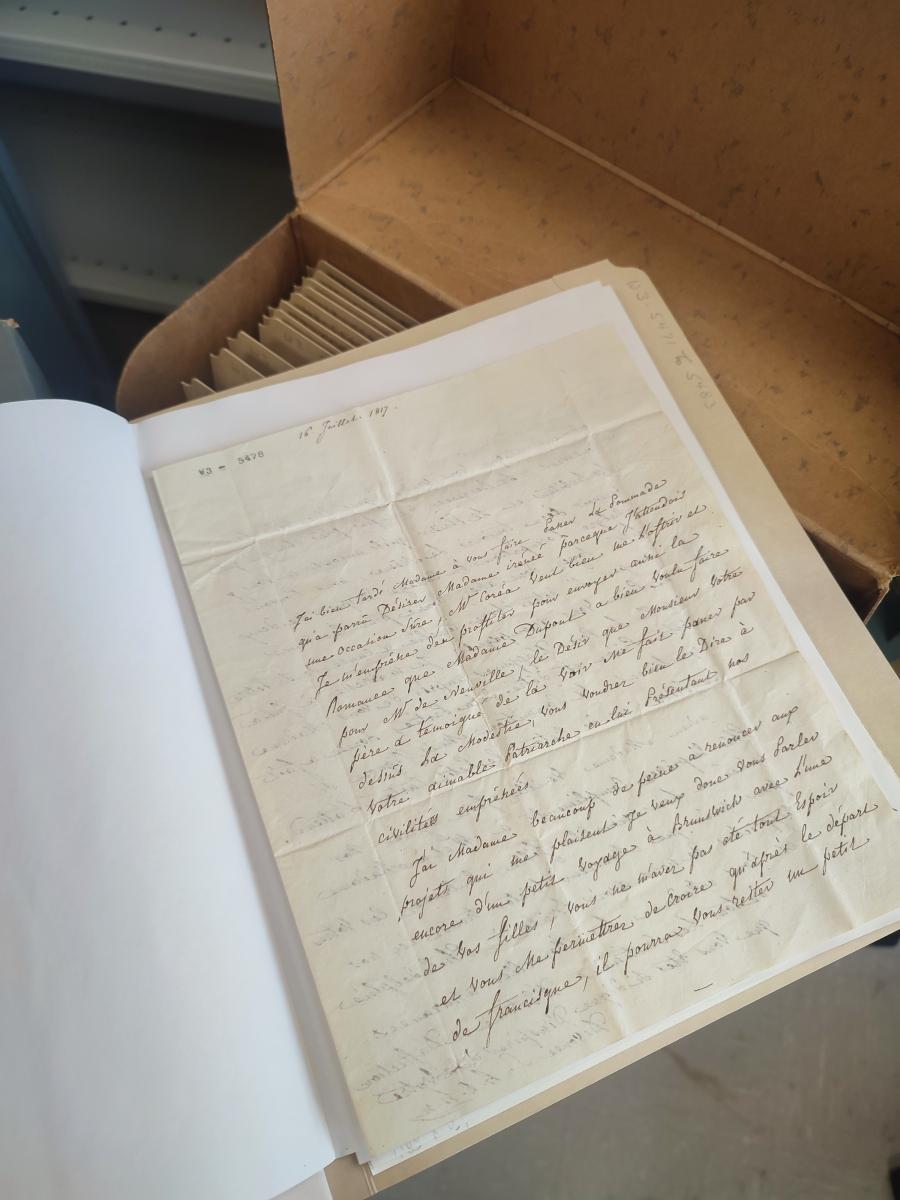 16 Juillet. 1817.
W3 - 5478
W3-5471 to 5483
J'ai bien tardé Madame à vous faire Passer La Pommade
qu'a parru Désirer Madame irénée parceque J'attendois
une occasion Sûre, Mr Coréa veut bien me L'offrir et
Je m'emprèse d'en profitter pour envoyer aussi la
Romance que Madame Dupont a bien voulu faire
pour Mr de Neuville, le Désir que Monsieur Votre
père a témoigné de la Voir Me fait passer par
dessus La Modestie, vous voudrez bien le Dire à
Votre aimable Patriarche en lui Présentant nos
civilitées emprésées
J'ai Madame beaucoup de peine a renoncer aux
projets qui me plaisent Je veux donc vous Parler
encore d'un petit voyage à Brunswick avec L'une
de vos filles, vous ne m'avez pas oté tout Espoir
et vous Me permettrez de croire qu'après le départ
de francisque, il pourra vous rester un petit